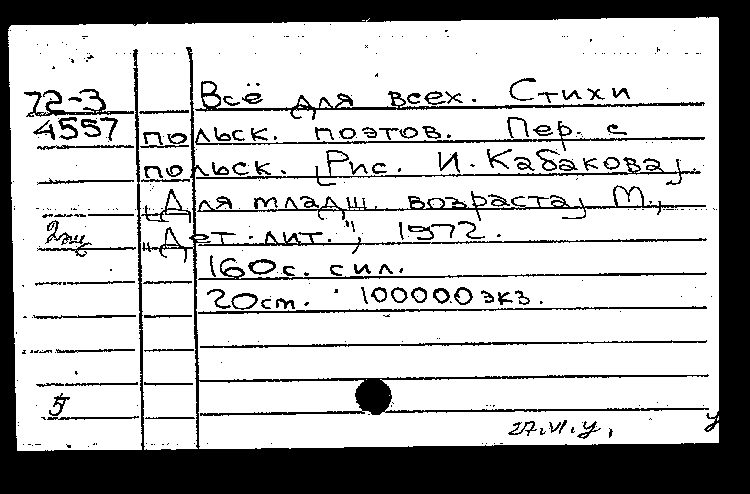 72-3 Всё для всех. Стихи
4557 польск. поэтов. Пер. с
польск. [Рис. И. Кабакова]
[Для младш. возраста] М.,
"Дет. лит.", 1972.
160с. с ил.
20см. 100000 экз.
5
27.VI.у,